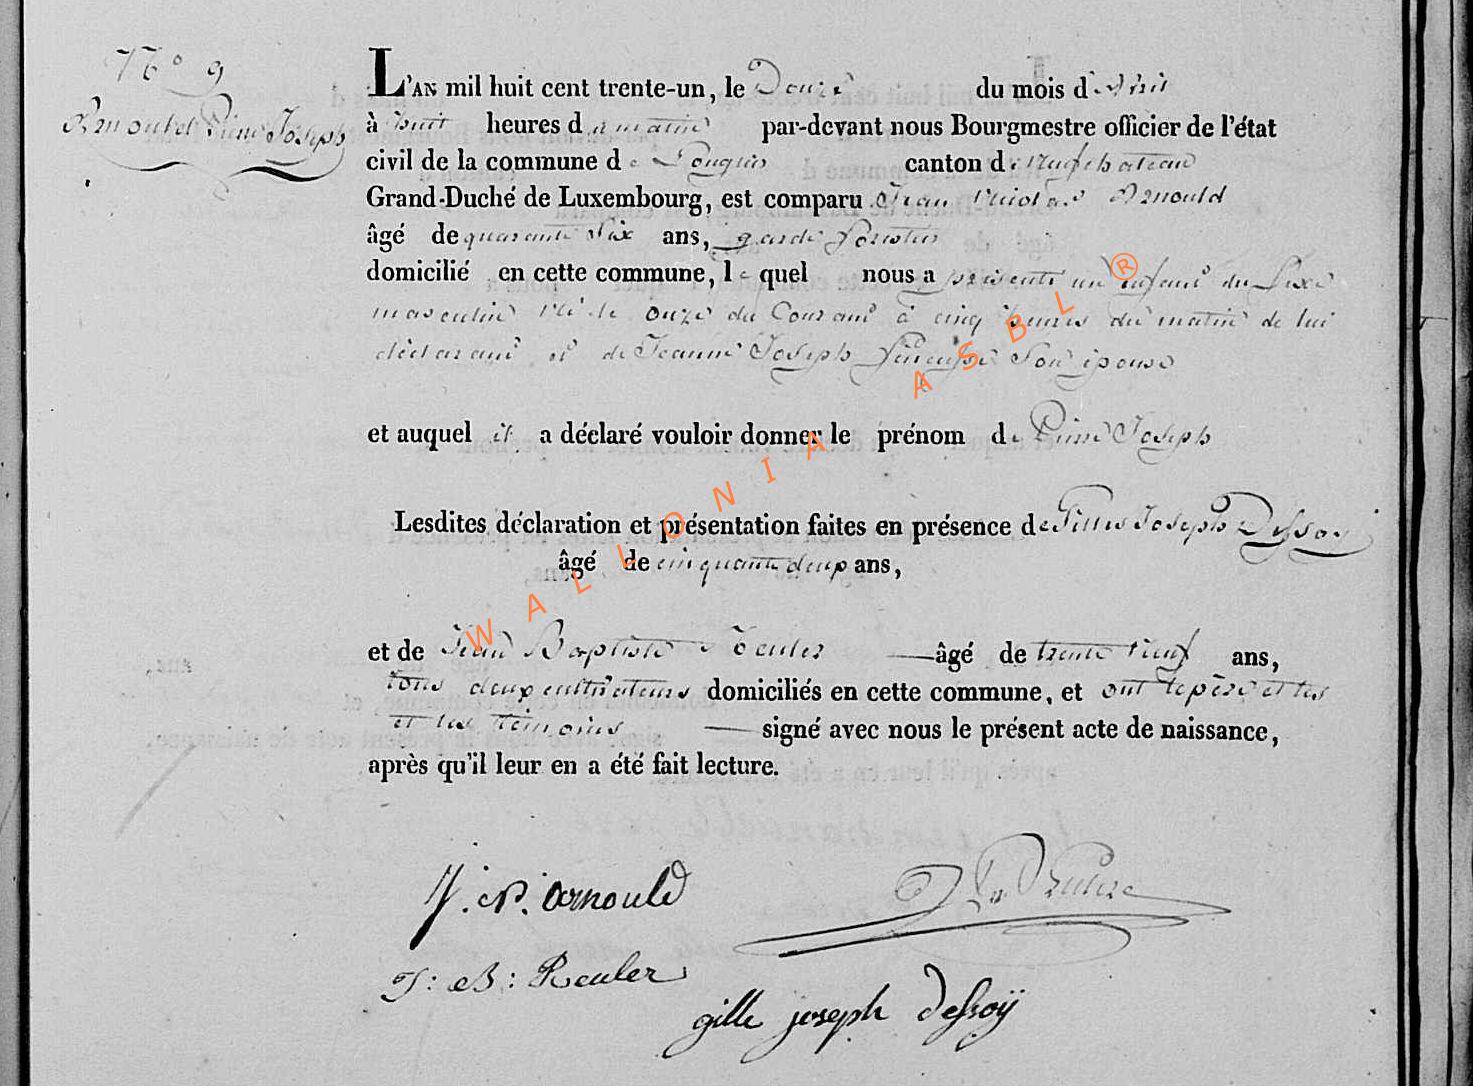 N.° 9
Arnould Pierre Joseph
L'AN mil huit cent trente-un, le Douze du mois d'avril
à huit heures du matin par-devant nous Bourgmestre officier de l'état
civil de la commune de Longlier canton de neufchateau
Grand-Duché de Luxembourg, est comparu Jean Nicolas Arnould
âgé de quarante Six ans, garde forestier
domicilié en cette commune, lequel nous a présenté un enfant du Sexe
masculin né le onze du Courant à cinq heures du matin de lui
déclarant et de Jeanne Joseph Son épouse
et auquel il a déclaré vouloir donner le prénom de Pierre Joseph
Lesdites déclaration et présentation faites en présence de Gilles Joseph Dessoy
âgé de cinquante deux ans,
et de Jean Baptiste Reuler âgé de trente neuf ans,
tous deux cultivateurs domiciliés en cette commune, et ont le père et les
et les témoins signé avec nous le présent acte de naissance,
après qu'il leur en a été fait lecture.
J. N. Arnould
J: B: Reuler
gille joseph dessoÿ
WALLONIA ASBL ®